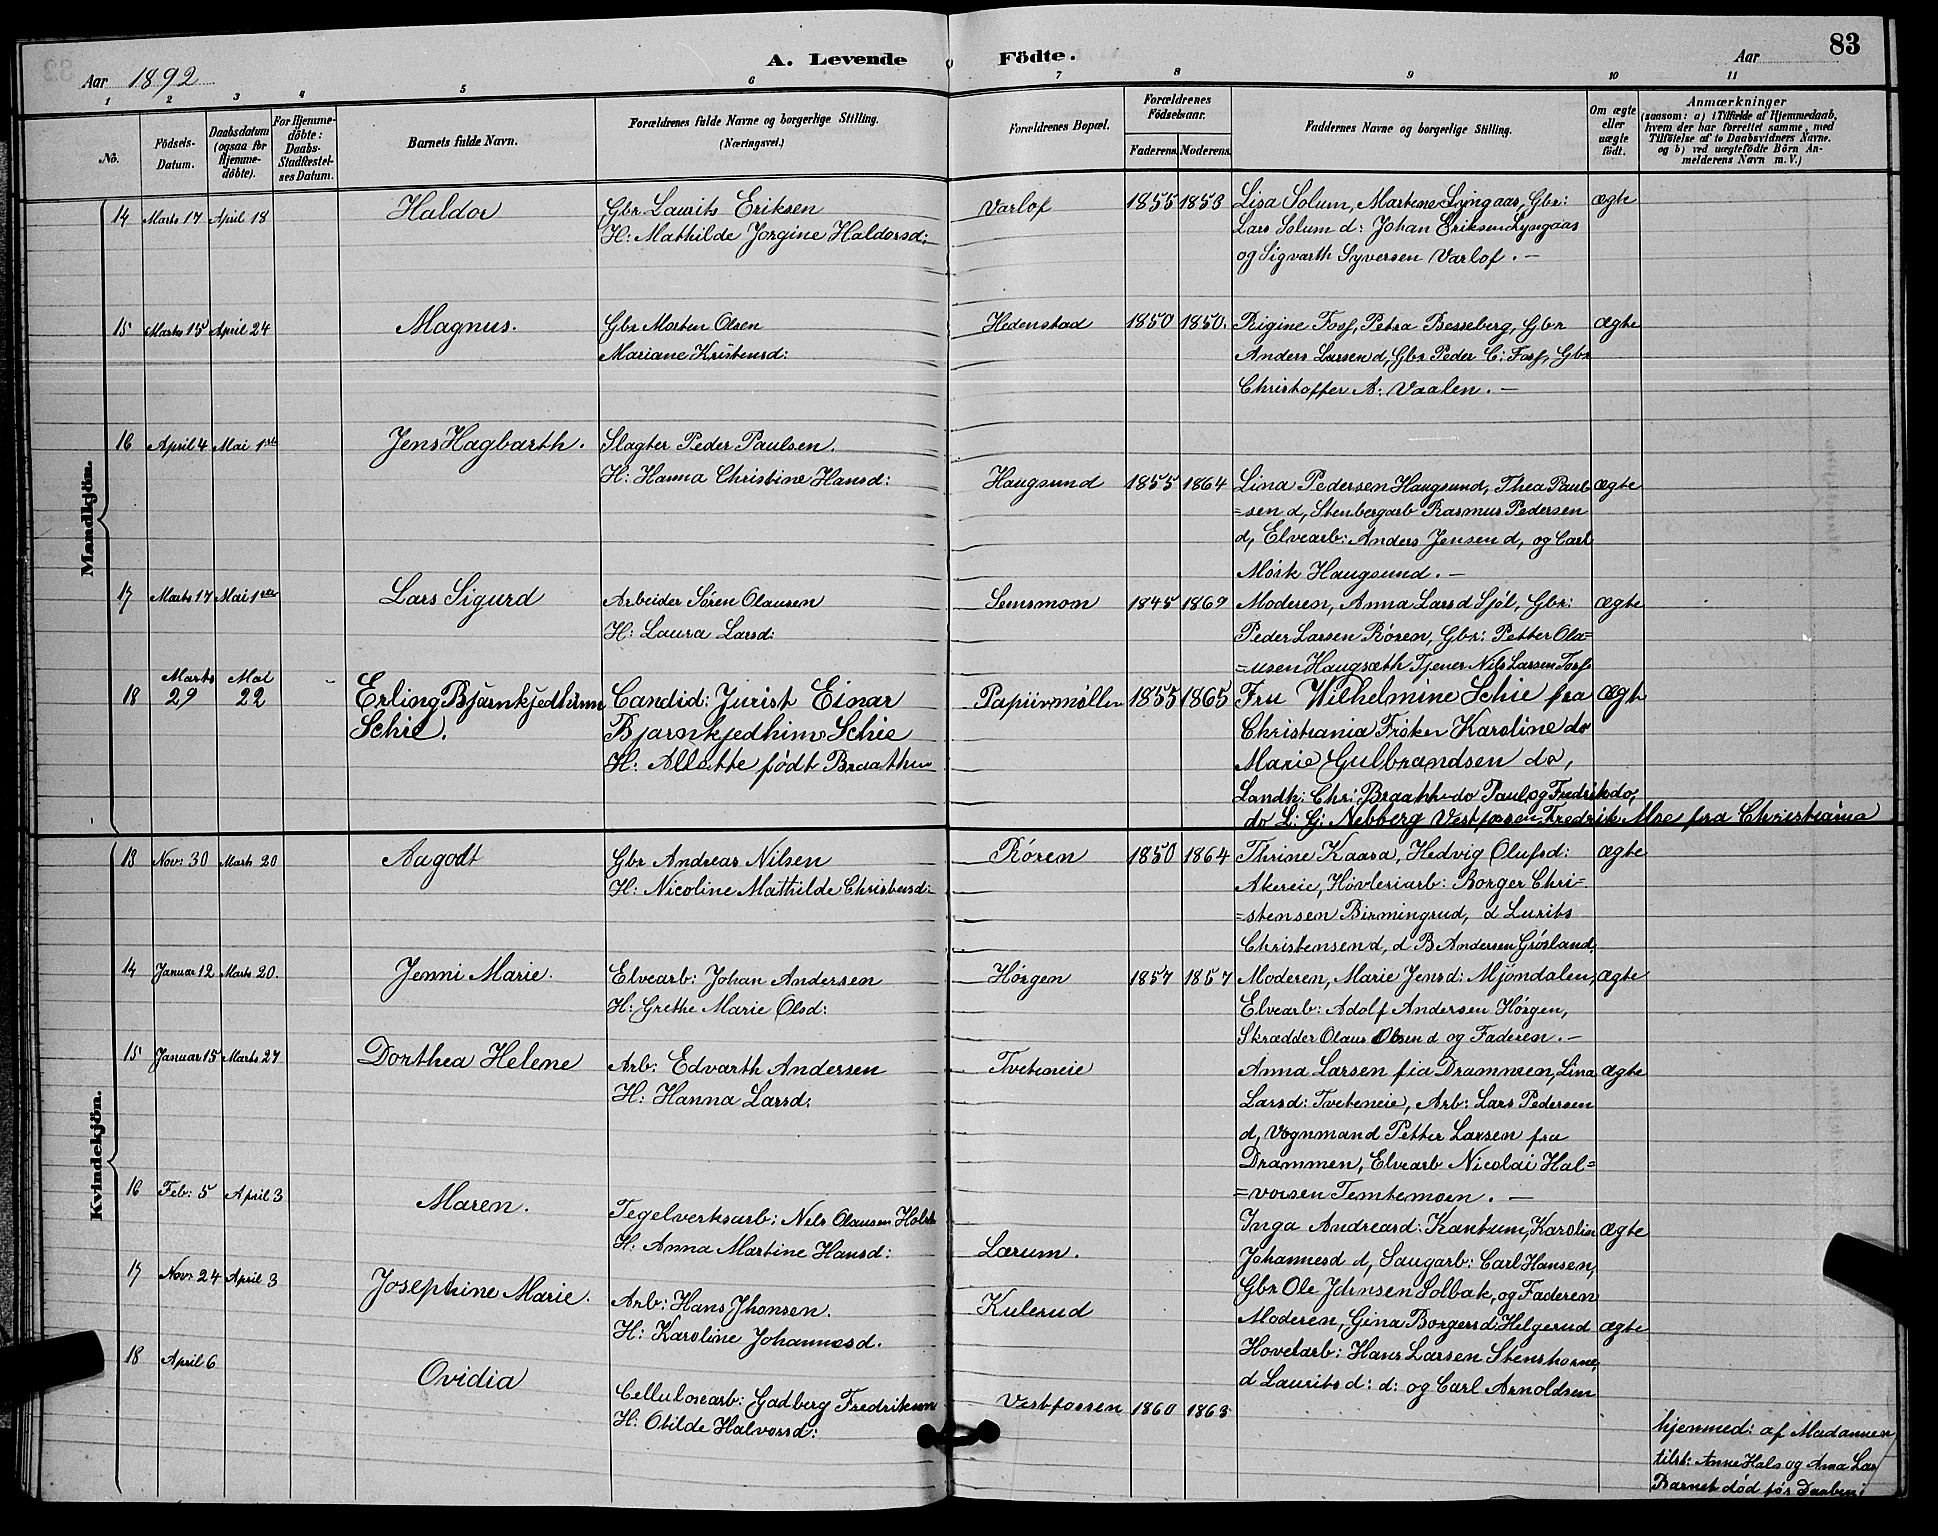 83
A. Levende Födte.
Aar 1892
Aar
1 2 3 4 5 6 7 8 9 10 11
No.
Födsels-Datum.
Daabsdatum (ogsaa for Hjemme-döbte).
For Hjemme-döbte: Daabs-Stadfæstel-ses Datum.
Barnets fulde Navn.
Forældrenes fulde Navne og borgerlige Stilling. (Næringsvei.)
Forældrenes Bopæl.
Forældrenes Födselsaar.
Faderens. Moderens.
Faddernes Navne og borgerlige Stilling.
Om ægte eller uægte födt.
Anmærkninger
(saasom: a) i Tilfælde af Hjemmedaab, hvem der har forrettet samme, med Tilföielse af to Daabsvidners Navne. og b) ved uægtefödte Börn An-melderens Navn m. V.)
Mandkjön.
14 Marts 17 April 18 Haldor
Gbr Laurits Eriksen
H: Mathilde Jorgine Haldorsd:
Varlof 1855 1853
Lisa Solum, Martene Lyngaas, Gbr:
Lars Solum d: Johan Eriksen Lyngaas
og Sigvarth Syversen Varlof. —
ægte
15 Marts 15 April 24 Magnus.
Gbr Morten Olsen
Mariane Kristensd:
Hedenstad 1850 1850.
Rigine Fosf, Petra Besseberg, Gbr
Anders Larsen d, Gbr Peder C: Fosf, Gbr
Christoffer A: Vaalen. —
ægte
16 April 4 Mai 1ste Jens Hagbarth.
Slagter Peder Paulsen.
H: Hanna Christine Hansd:
Haugsund 1855 1864
Lina Pedersen Haugsund, Thea Paul
=sen d, Stenbergarb Rasmus Pedersen
d, Elvearb: Anders Jensen d, og Carl
Mörk Haugsund. —
ægte
17 Marts 17 Mai 1ste Lars Sigurd
Arbeider Sören Olausen
H: Laura Larsd:
Semsmoen 1845 1869
Moderen, Anna Larsd Sjöl, Gbr:
Peder Larsen Rören, Gbr: Petter Ola=
=usen Haugsæth Tjener Nils Larsen Fosf
ægte
18 Marts 29 Mai 22
Erling Bjarnhjedhinn
Schie.
Candid: Jurist Einar
Bjarnhjedhinn Schie
H: Allette födt Braathen
Papiirmöllen 1855 1865
Fru Wilhelmine Schie fra
Christiania Fröken Karoline do
Marie Gulbrandsen do,
Landh: Chr: Braathe do Paul og Fredrik do,
do L: G: Nebberg Vestfossen Fredrik Moe fra Christiania
ægte
Kvindekjön.
13 Nov: 30 Marts 20 Aagodt
Gbr Andreas Nilsen
H: Nicoline Mathilde Christensd:
Rören 1850 1864
Thrine Kaasa, Hedvig Olufsd:
Akereie, Hövleriarb: Borger Chri=
=stensen Birmingrud, d Lurits
Christensen d, d B Andersen Grösland.
ægte
14 Januar 12 Marts 20. Jenni Marie.
Elvearb: Johan Andersen
H: Grethe Marie Olsd:
Hörgen 1857 1857
Moderen, Marie Jensd: Mjöndalen,
Elvearb: Adolf Andersen Hörgen,
Skrædder Olaus Olsen d og Faderen. —
ægte
15 Januar 15 Marts 27 Dorthea Helene
Arb: Edvarth Andersen
H: Hanna Larsd:
Tveteneie
Anna Larsen fia Drammen, Lina
Larsd: Tveteneie, Arb: Lars Pedersen
d, Vognmand Petter Larsen fra
Drammen, Elvearb Nicolai Hal=
=vorsen Temtemoen. —
ægte
16 Feb: 5 April 3 Maren.
Tegelverksarb: Nels Olausen Holst
H: Anna Martine Hansd:
Lærum.
Inga Andreasd: Kantum, Karolin
Johannesd d, Saugarb: Carl Hansen,
Gbr Ole Johnsen Solbak, og Faderen
ægte
17 Novr 24 April 3 Josephine Marie.
Arb: Hans Jhonsen.
H: Karoline Johannesd.
Kulerud
Moderen, Gina Borgersd: Helgerud
Hovelarb: Hans Larsen Stenshorne,
d Laurits d: d: og Carl Arnoldsen
ægte
18 April 6 Ovidia
Cellulosearb: Gadberg Fredriksen
H: Otilde Halvorsd:
Vestfossen 1860 1863
hjemmed: af Madammen
tilst: Anne Hals og Anna Lar
Barnet död för Daaben: